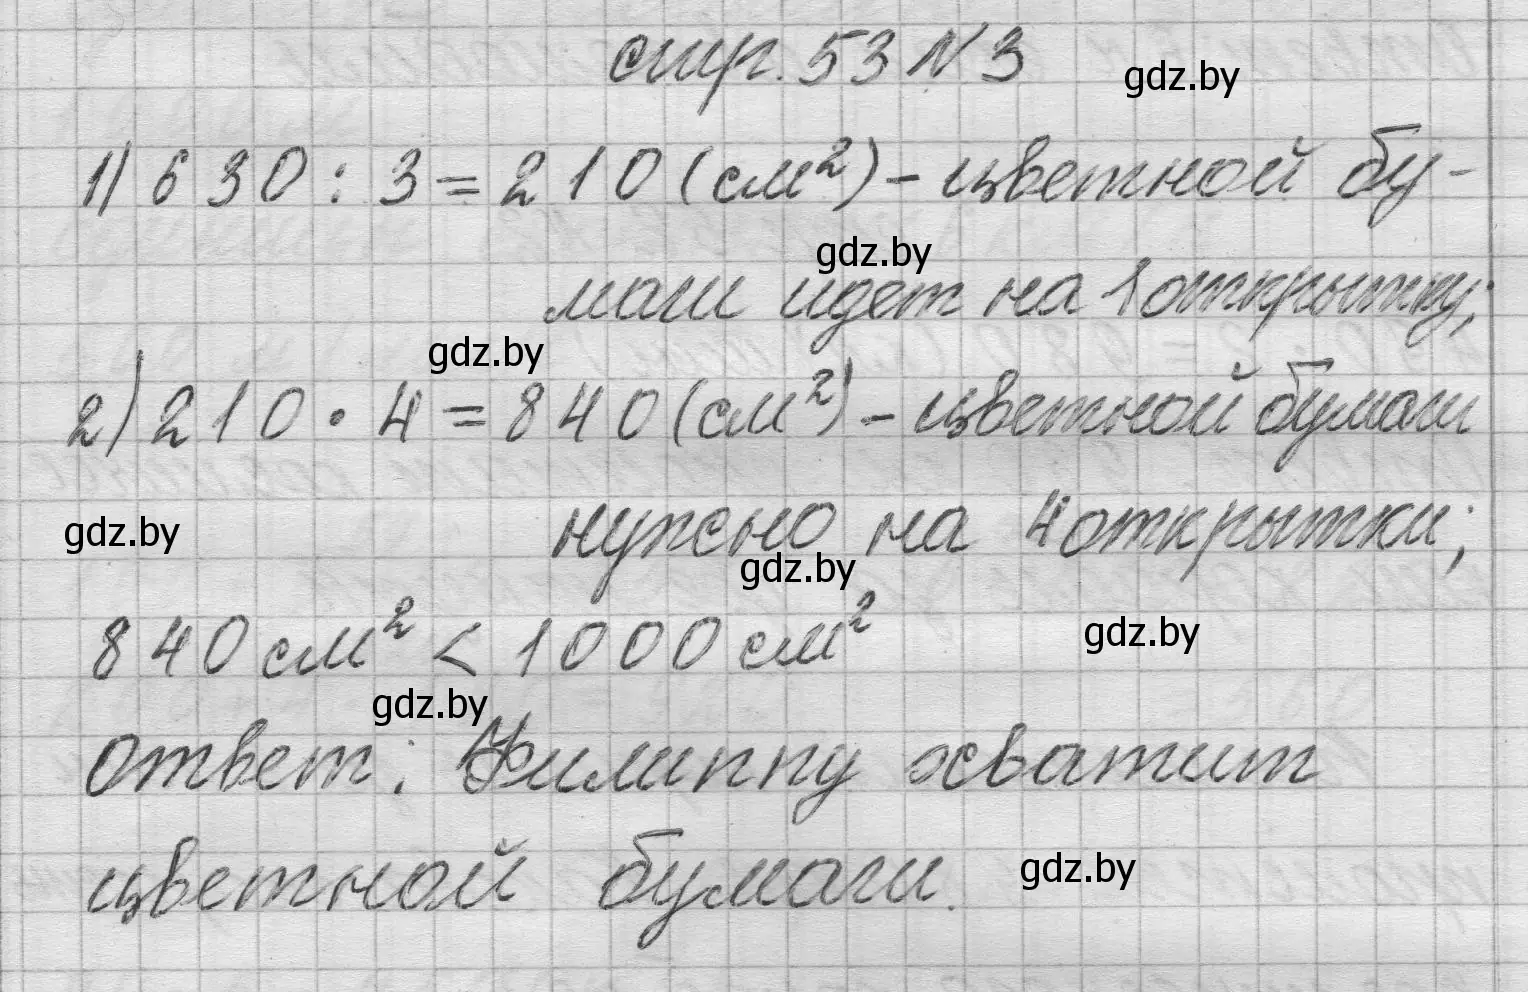 стр. 53 N 3
gdz.by
1) 630 : 3 = 210 (см²) - цветной бу-
gdz.by
маги идет на 1 открытку;
gdz.by
2) 210 · 4 = 840 (см²) - цветной бумаги
gdz.by
нужно на 4 открытки;
gdz.by
840 см² < 1000 см²
gdz.by
gdz.by
Ответ: Филиппу хватит
цветной бумаги.
gdz.by